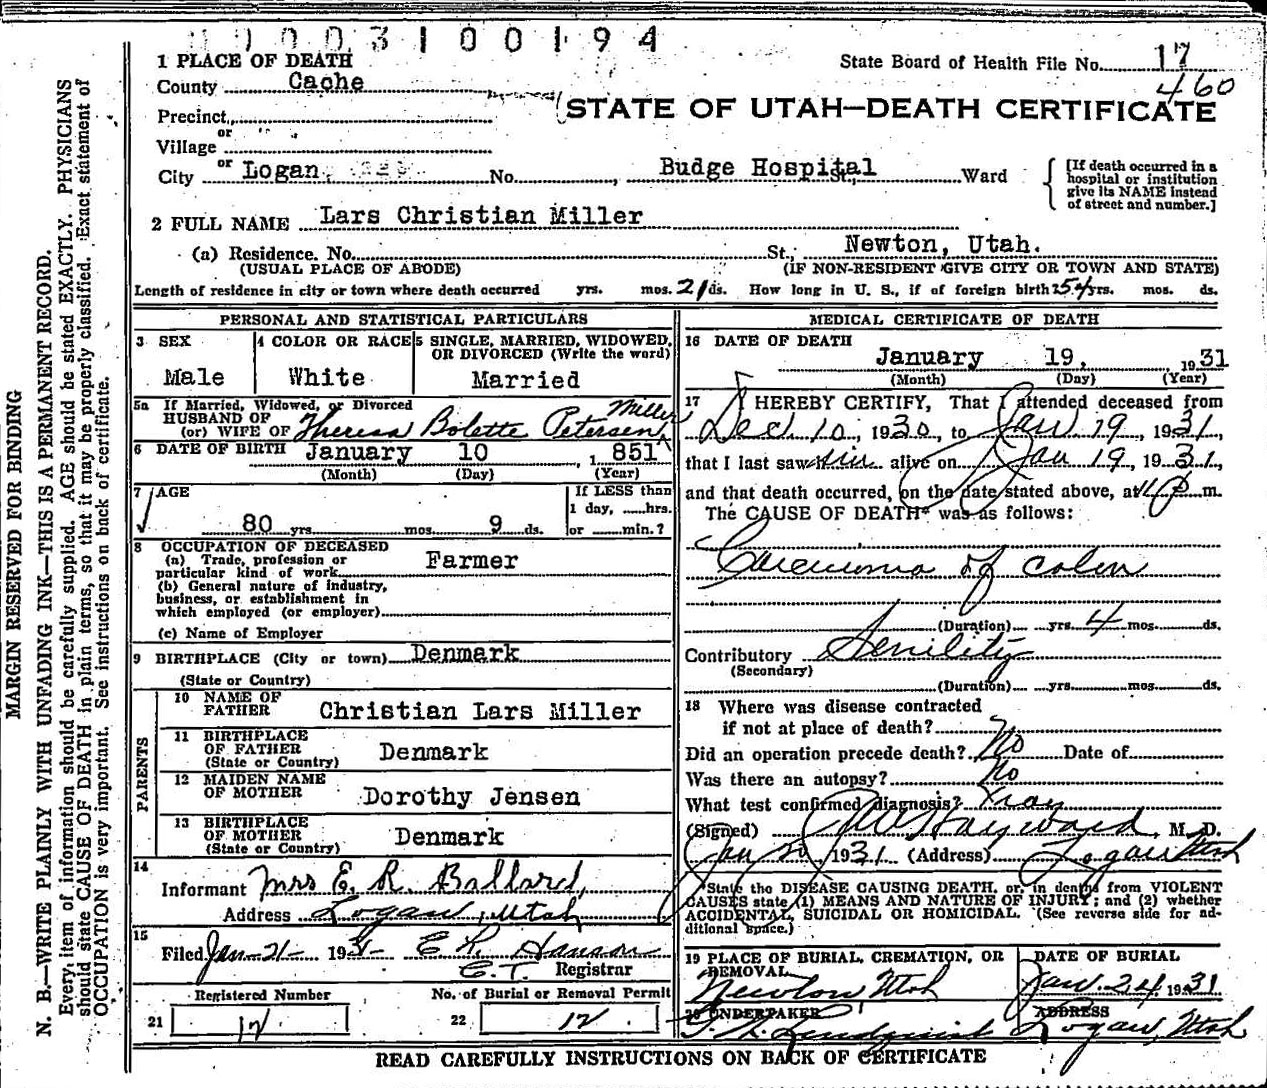 0003100194
1 PLACE OF DEATH
State Board of Health File No. 17
460
County Cache
STATE OF UTAH—DEATH CERTIFICATE
Precinct
or
Village
or
City Logan, No. , Budge Hospital St., Ward
[If death occurred in a
hospital or institution
give its NAME instead
of street and number.]
2 FULL NAME Lars Christian Miller
(a) Residence. No. St.; Newton, Utah.
(USUAL PLACE OF ABODE) (IF NON-RESIDENT GIVE CITY OR TOWN AND STATE)
Length of residence in city or town where death occurred yrs. mos. 21 ds. How long in U. S., if of foreign birth? 54 yrs. mos. ds.
PERSONAL AND STATISTICAL PARTICULARS
3 SEX
Male
4 COLOR OR RACE
White
5 SINGLE, MARRIED, WIDOWED,
OR DIVORCED (Write the word)
Married
5a If Married, Widowed, or Divorced
HUSBAND OF
(or) WIFE OF Theresa Bolette Petersen Miller
6 DATE OF BIRTH January 10, 1851
(Month) (Day) (Year)
7 AGE
80 yrs. mos. 9 ds.
If LESS than
1 day, hrs.
or min.?
8 OCCUPATION OF DECEASED
(a) Trade, profession or
particular kind of work Farmer
(b) General nature of industry,
business, or establishment in
which employed (or employer)
(c) Name of Employer
9 BIRTHPLACE (City or town) Denmark
(State or Country)
PARENTS
10 NAME OF
FATHER Christian Lars Miller
11 BIRTHPLACE
OF FATHER
(State or Country) Denmark
12 MAIDEN NAME
OF MOTHER Dorothy Jensen
13 BIRTHPLACE
OF MOTHER
(State or Country) Denmark
14
Informant Mrs E. R. Ballard,
Address Logan, Utah
15
Filed Jan-21- 1931- E R. Hanson
C.T. Registrar
Registered Number
21 17
No. of Burial or Removal Permit
22 17
MEDICAL CERTIFICATE OF DEATH
16 DATE OF DEATH
January 19, 1931
(Month) (Day) (Year)
17 I HEREBY CERTIFY, That I attended deceased from
Dec. 10, 1930, to Jan 19, 1931,
that I last saw him alive on Jan 19, 1931,
and that death occurred, on the date stated above, at m.
The CAUSE OF DEATH* was as follows:
Carcinoma of colon
(Duration) yrs. 4 mos. ds.
Contributory Senility
(Secondary)
(Duration) yrs. mos. ds.
18 Where was disease contracted
if not at place of death?
Did an operation precede death? No Date of
Was there an autopsy? No
What test confirmed diagnosis? Xray
(Signed) Hayward, M. D.
Jan 20, 1931 (Address) Logan Utah
*State the DISEASE CAUSING DEATH, or, in deaths from VIOLENT
CAUSES state (1) MEANS AND NATURE OF INJURY; and (2) whether
ACCIDENTAL, SUICIDAL OR HOMICIDAL. (See reverse side for ad-
ditional space.)
19 PLACE OF BURIAL, CREMATION, OR
REMOVAL
Newton Utah
DATE OF BURIAL
Jan. 24, 1931
20 UNDERTAKER
Lundquist
ADDRESS
Logan, Utah
READ CAREFULLY INSTRUCTIONS ON BACK OF CERTIFICATE
MARGIN RESERVED FOR BINDING
N. B.—WRITE PLAINLY WITH UNFADING INK—THIS IS A PERMANENT RECORD.
Every item of information should be carefully supplied. AGE should be stated EXACTLY. PHYSICIANS
should state CAUSE OF DEATH in plain terms, so that it may be properly classified. Exact statement of
OCCUPATION is very important. See instructions on back of certificate.